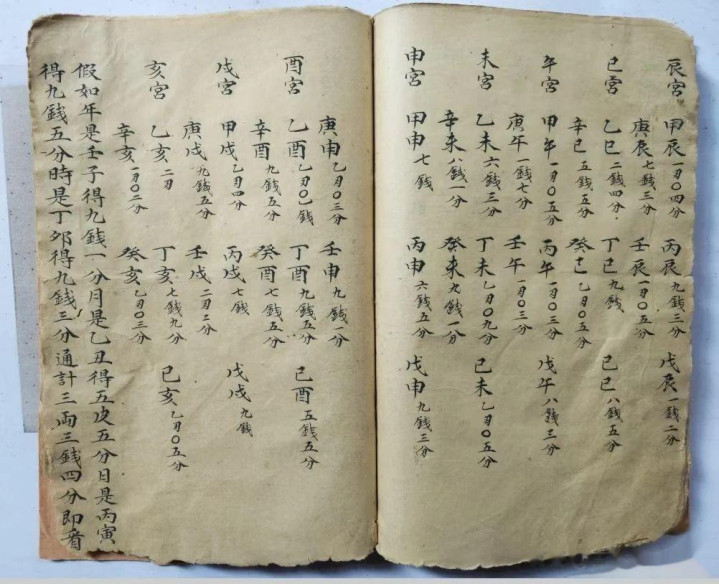 辰宮 甲辰一刃〇四分 丙辰九錢三分 戊辰一錢二分
庚辰七錢三分 壬辰一刃〇五分
巳宮 乙巳二錢四分 丁巳九錢 己巳八錢五分
辛巳五錢五分 癸巳乙刃〇五分
午宮 甲午一刃〇五分 丙午一刃〇三分 戊午八錢三分
庚午一錢七分 壬午一刃〇三分
未宮 乙未六錢三分 丁未乙刃〇九分 己未乙刃〇五分
辛未八錢一分 癸未九錢一分
申宮 甲申七錢 丙申六錢五分 戊申九錢三分
庚申乙刃〇三分 壬申九錢一分
酉宮 乙酉乙刃〇乙錢 丁酉九錢五分 己酉五錢五分
辛酉九錢五分 癸酉七錢五分
戌宮 甲戌乙刃四分 丙戌七錢 戊戌九錢
庚戌九錢五分 壬戌二刃二分
亥宮 乙亥二刃 丁亥七錢九分 己亥乙刃〇五分
辛亥一刃〇二分 癸亥乙刃〇三分
假如年是壬子得九錢一分月是乙丑得五戔五分日是丙寅
得九錢五分時是丁夘得九錢三分通計三両三錢四分即看